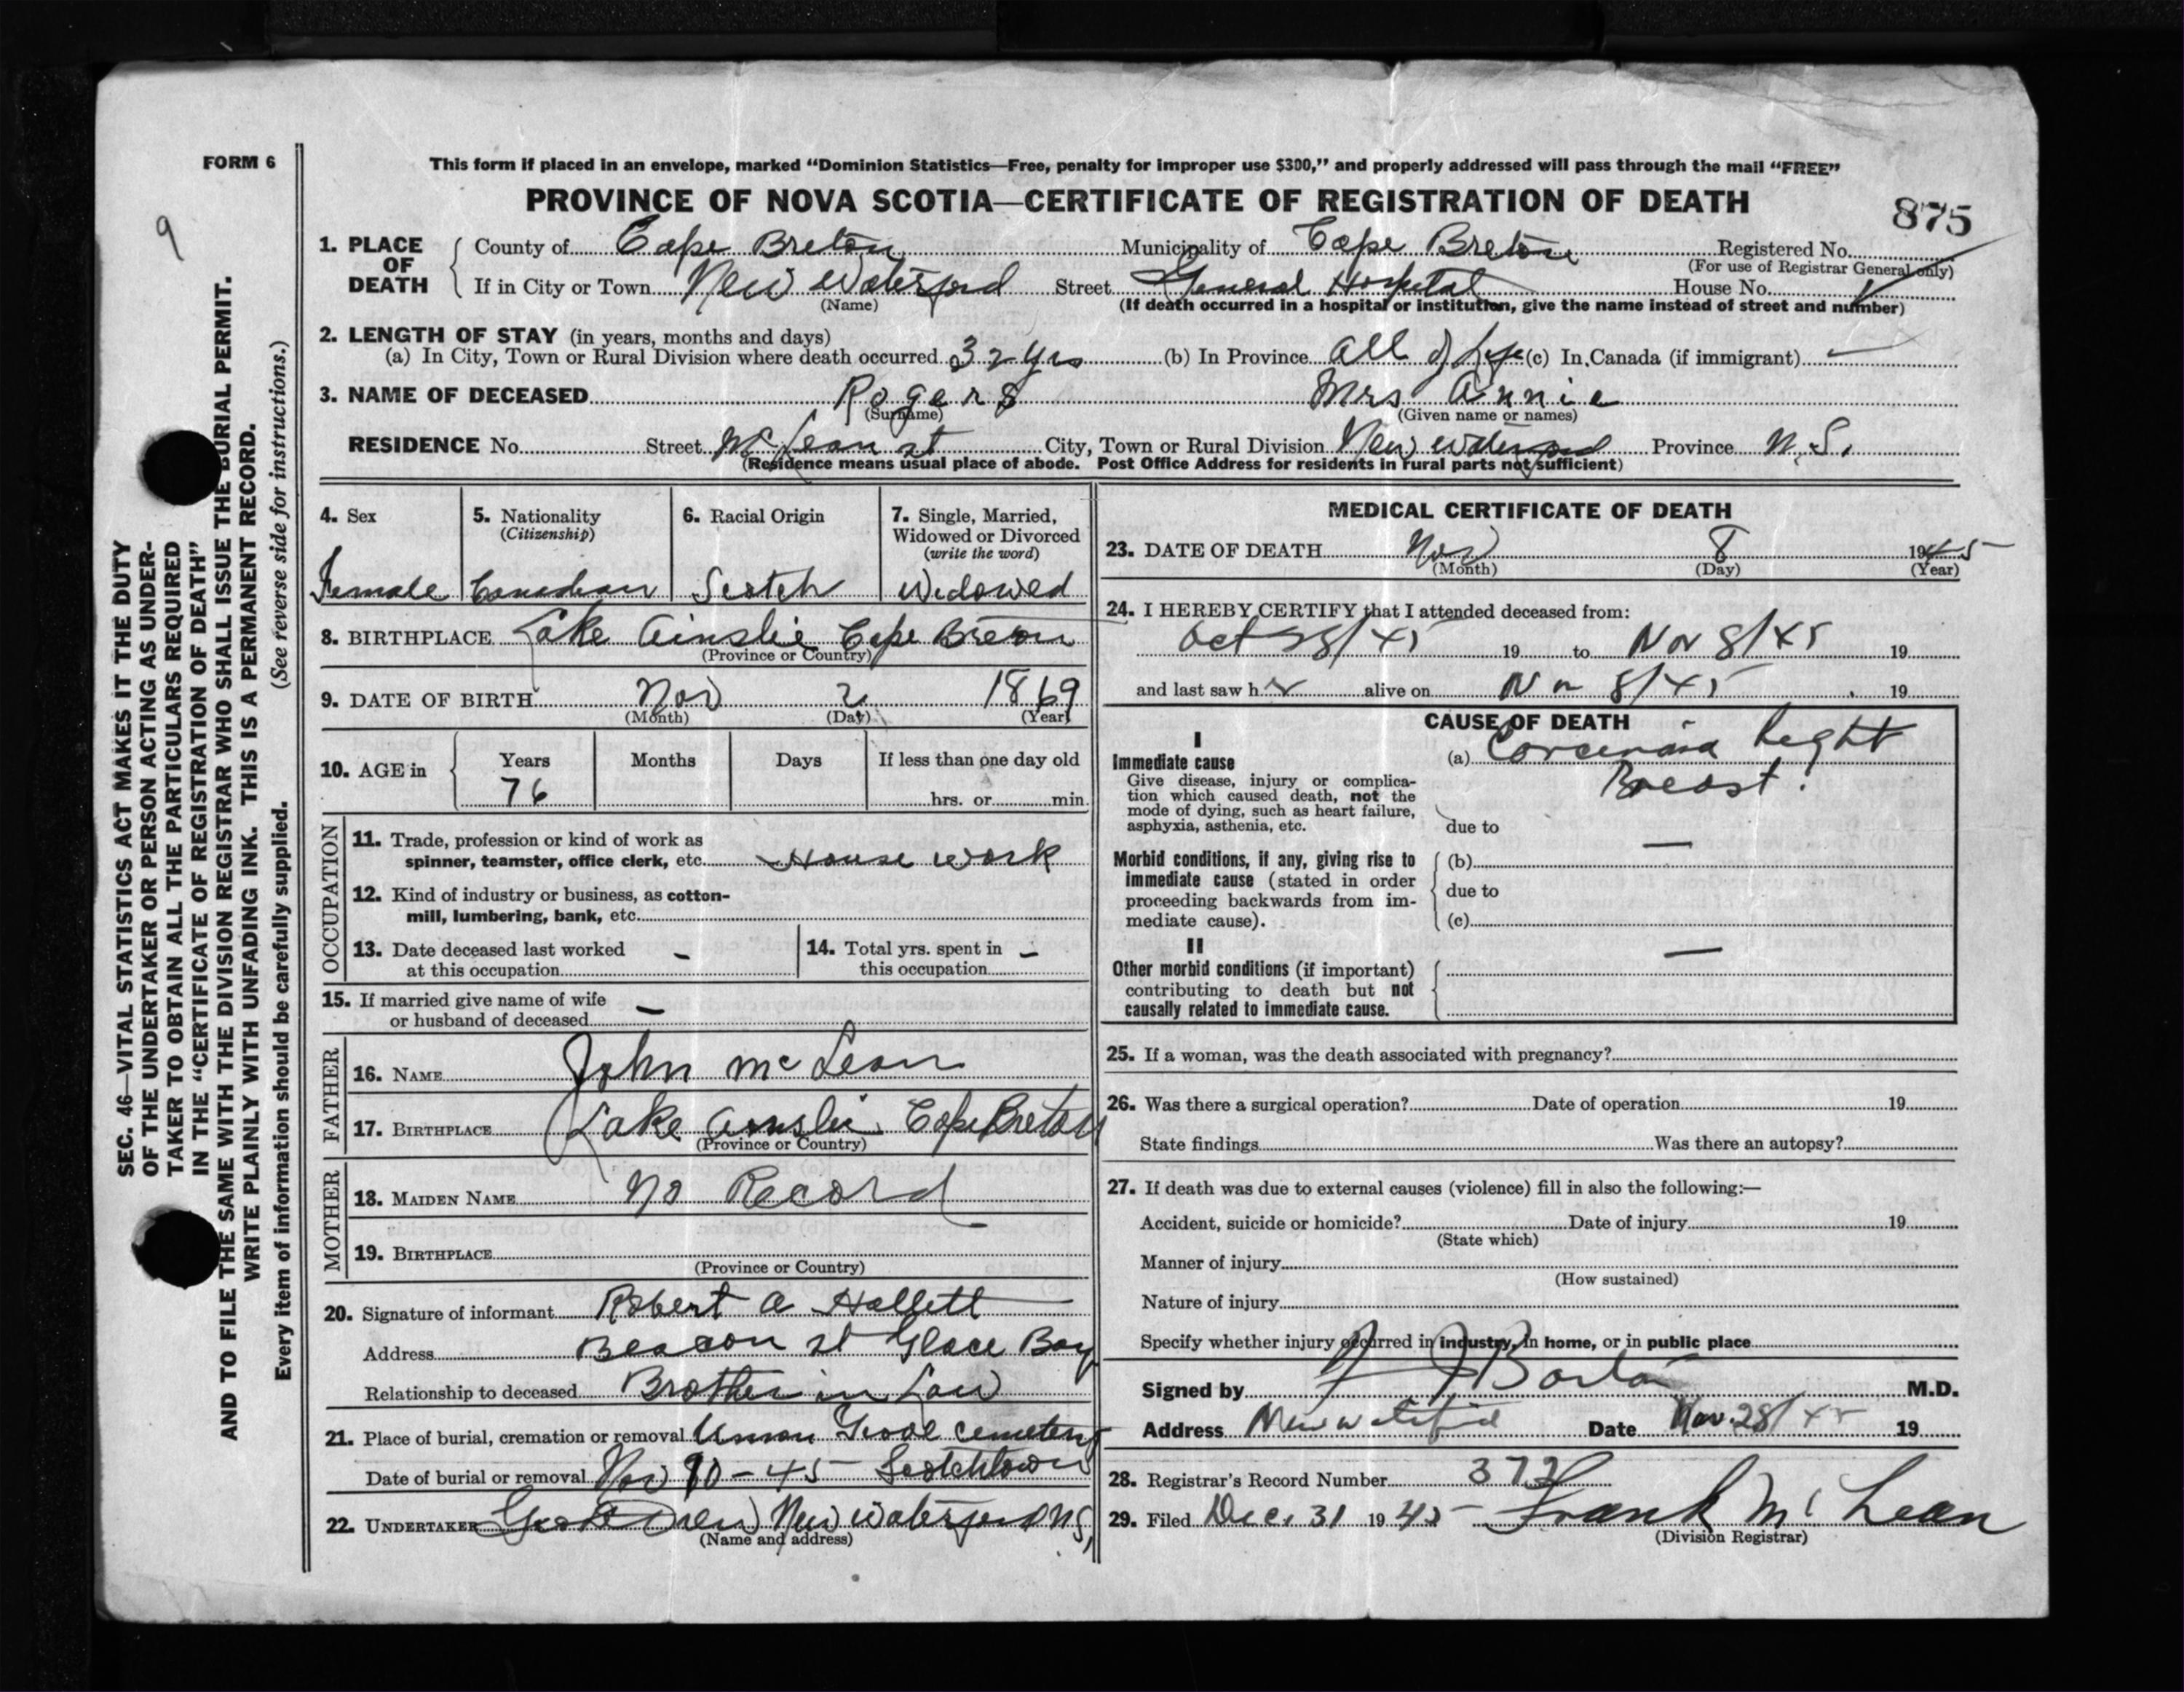 FORM 6
This form if placed in an envelope, marked "Dominion Statistics—Free, penalty for improper use $300," and properly addressed will pass through the mail "FREE"
PROVINCE OF NOVA SCOTIA—CERTIFICATE OF REGISTRATION OF DEATH
875
9
SEC. 46—VITAL STATISTICS ACT MAKES IT THE DUTY
OF THE UNDERTAKER OR PERSON ACTING AS UNDER-
TAKER TO OBTAIN ALL THE PARTICULARS REQUIRED
IN THE "CERTIFICATE OF REGISTRATION OF DEATH"
AND TO FILE THE SAME WITH THE DIVISION REGISTRAR WHO SHALL ISSUE THE BURIAL PERMIT.
WRITE PLAINLY WITH UNFADING INK. THIS IS A PERMANENT RECORD.
Every item of information should be carefully supplied. (See reverse side for instructions.)
1. PLACE OF DEATH
County of Cape Breton Municipality of Cape Breton Registered No.
(For use of Registrar General only)
If in City or Town New Waterford Street General Hospital House No.
(Name) (If death occurred in a hospital or institution, give the name instead of street and number)
2. LENGTH OF STAY (in years, months and days)
(a) In City, Town or Rural Division where death occurred 32 yrs (b) In Province all of Life (c) In Canada (if immigrant) —
3. NAME OF DECEASED Rogers Mrs Annie
(Surname) (Given name or names)
RESIDENCE No. Street McLean st City, Town or Rural Division New Waterford Province N.S.
(Residence means usual place of abode. Post Office Address for residents in rural parts not sufficient)
4. Sex
Female
5. Nationality
(Citizenship)
Canadian
6. Racial Origin
Scotch
7. Single, Married,
Widowed or Divorced
(write the word)
Widowed
8. BIRTHPLACE Lake Ainslie Cape Breton
(Province or Country)
9. DATE OF BIRTH Nov 2 1869
(Month) (Day) (Year)
10. AGE in Years Months Days If less than one day old
76 hrs. or min.
OCCUPATION
11. Trade, profession or kind of work as
spinner, teamster, office clerk, etc. House work
12. Kind of industry or business, as cotton-
mill, lumbering, bank, etc.
13. Date deceased last worked
at this occupation -
14. Total yrs. spent in
this occupation -
15. If married give name of wife
or husband of deceased -
FATHER
16. NAME John McLean
17. BIRTHPLACE Lake Ainslie Cape Breton
(Province or Country)
MOTHER
18. MAIDEN NAME no Record
19. BIRTHPLACE
(Province or Country)
20. Signature of informant Robert A Hallett
Address Beacon st Glace Bay
Relationship to deceased Brother in Law
21. Place of burial, cremation or removal Union Grove Cemetery
Date of burial or removal Nov 10-45 Scotchtown
22. UNDERTAKER New Waterford N.S.
(Name and address)
MEDICAL CERTIFICATE OF DEATH
23. DATE OF DEATH Nov 8 1945
(Month) (Day) (Year)
24. I HEREBY CERTIFY that I attended deceased from:
Oct 28/45 19 to Nov 8/45 19
and last saw her alive on Nov 8/45 19
CAUSE OF DEATH
I
Immediate cause
Give disease, injury or complica-
tion which caused death, not the
mode of dying, such as heart failure,
asphyxia, asthenia, etc.
(a) Carcinoma Right
Breast.
due to
Morbid conditions, if any, giving rise to
immediate cause (stated in order
proceeding backwards from im-
mediate cause).
(b) —
due to
(c)
II
Other morbid conditions (if important)
contributing to death but not
causally related to immediate cause.
—
25. If a woman, was the death associated with pregnancy?
26. Was there a surgical operation? Date of operation 19
State findings Was there an autopsy?
27. If death was due to external causes (violence) fill in also the following:—
Accident, suicide or homicide? Date of injury 19
(State which)
Manner of injury
(How sustained)
Nature of injury
Specify whether injury occurred in industry, in home, or in public place
Signed by M.D.
Address New Waterford Date Nov. 28/45 19
28. Registrar's Record Number 372
29. Filed Dec. 31 1945 Frank McLean
(Division Registrar)